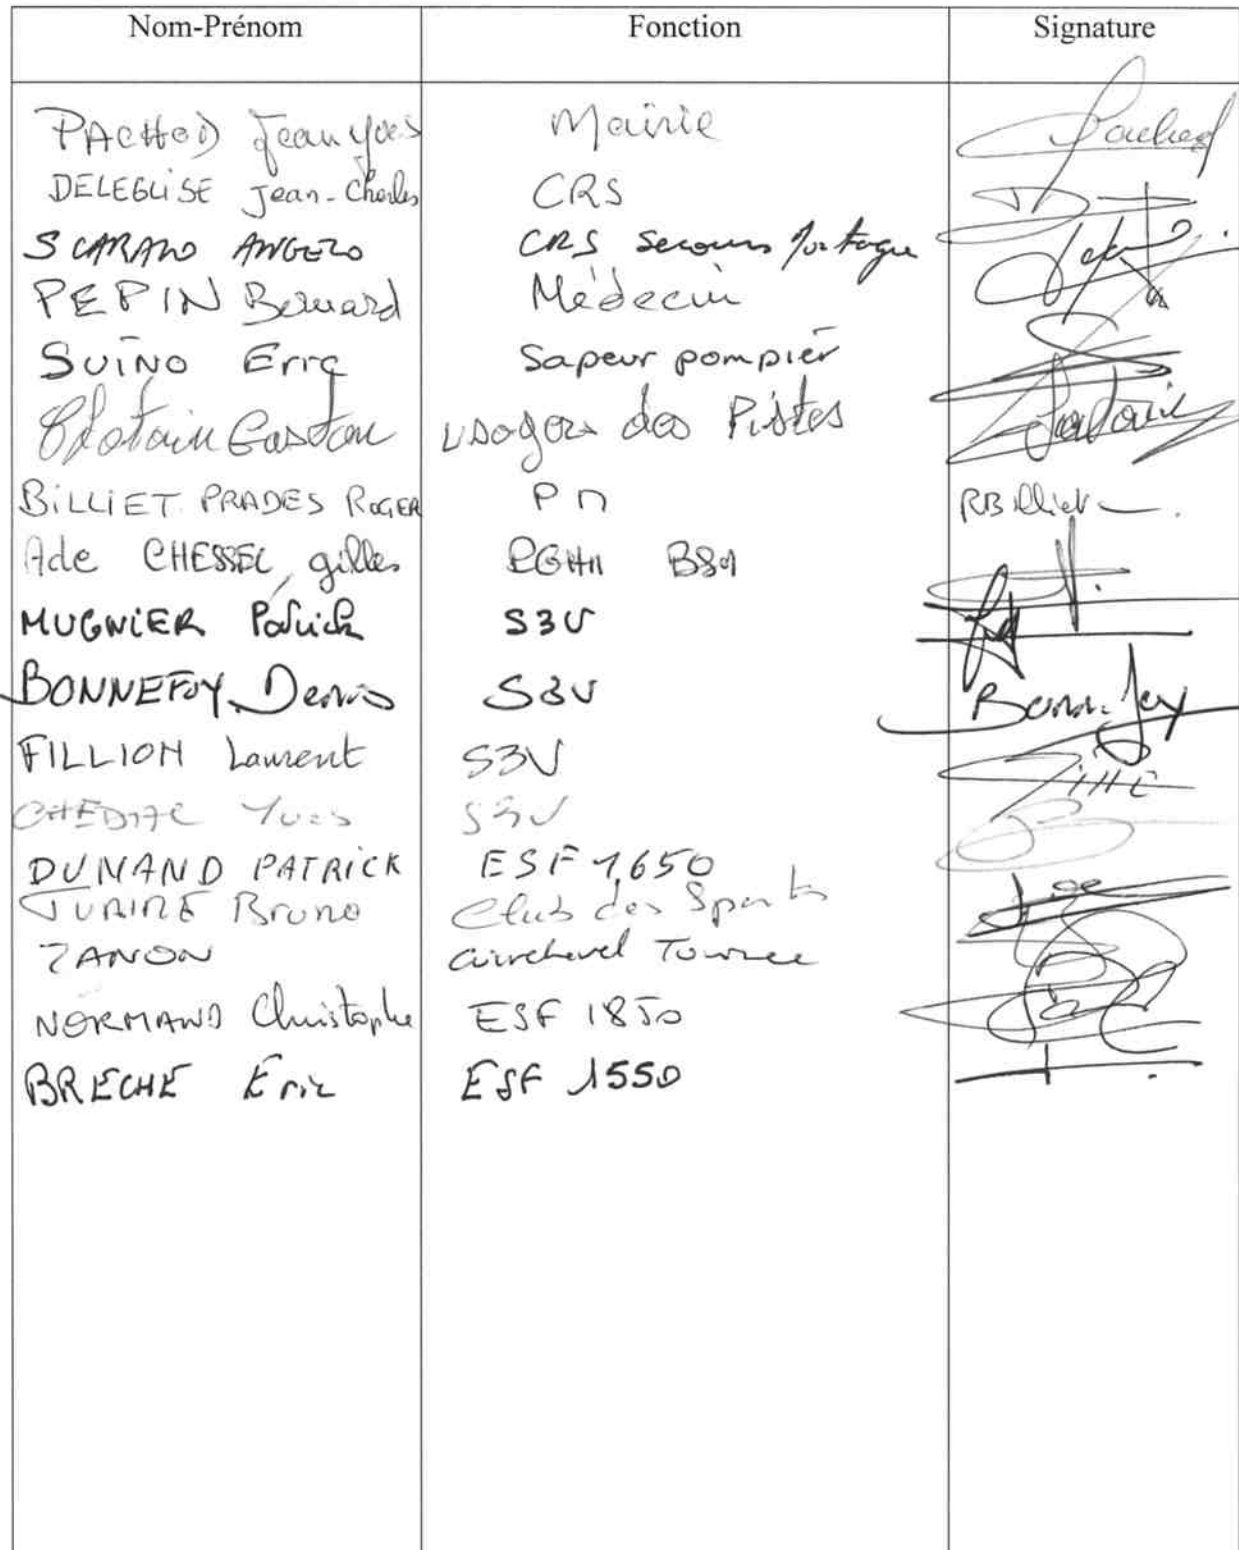 Nom-Prénom Fonction Signature
PACHOD Jean Yves Mairie
DELEGLISE Jean-Charles CRS
SCARANO ANGELO CRS Secours
PEPIN Bernard Médecin
SUINO Eric Sapeur pompier
Gaston usagers des Pistes
BILLIET PRADES ROGER PM RBilliet
Adc CHESSEL gilles PGHM
MUGNIER Patrick S3V
BONNEFOY Denis S3V Bonnefoy
FILLION Laurent S3V
Yves S3V
DUNAND PATRICK ESF 1650
Bruno Club des Sports
ZANON Courchevel Tourisme
NORMAND Christophe ESF 1850
BRECHE Eric ESF 1550